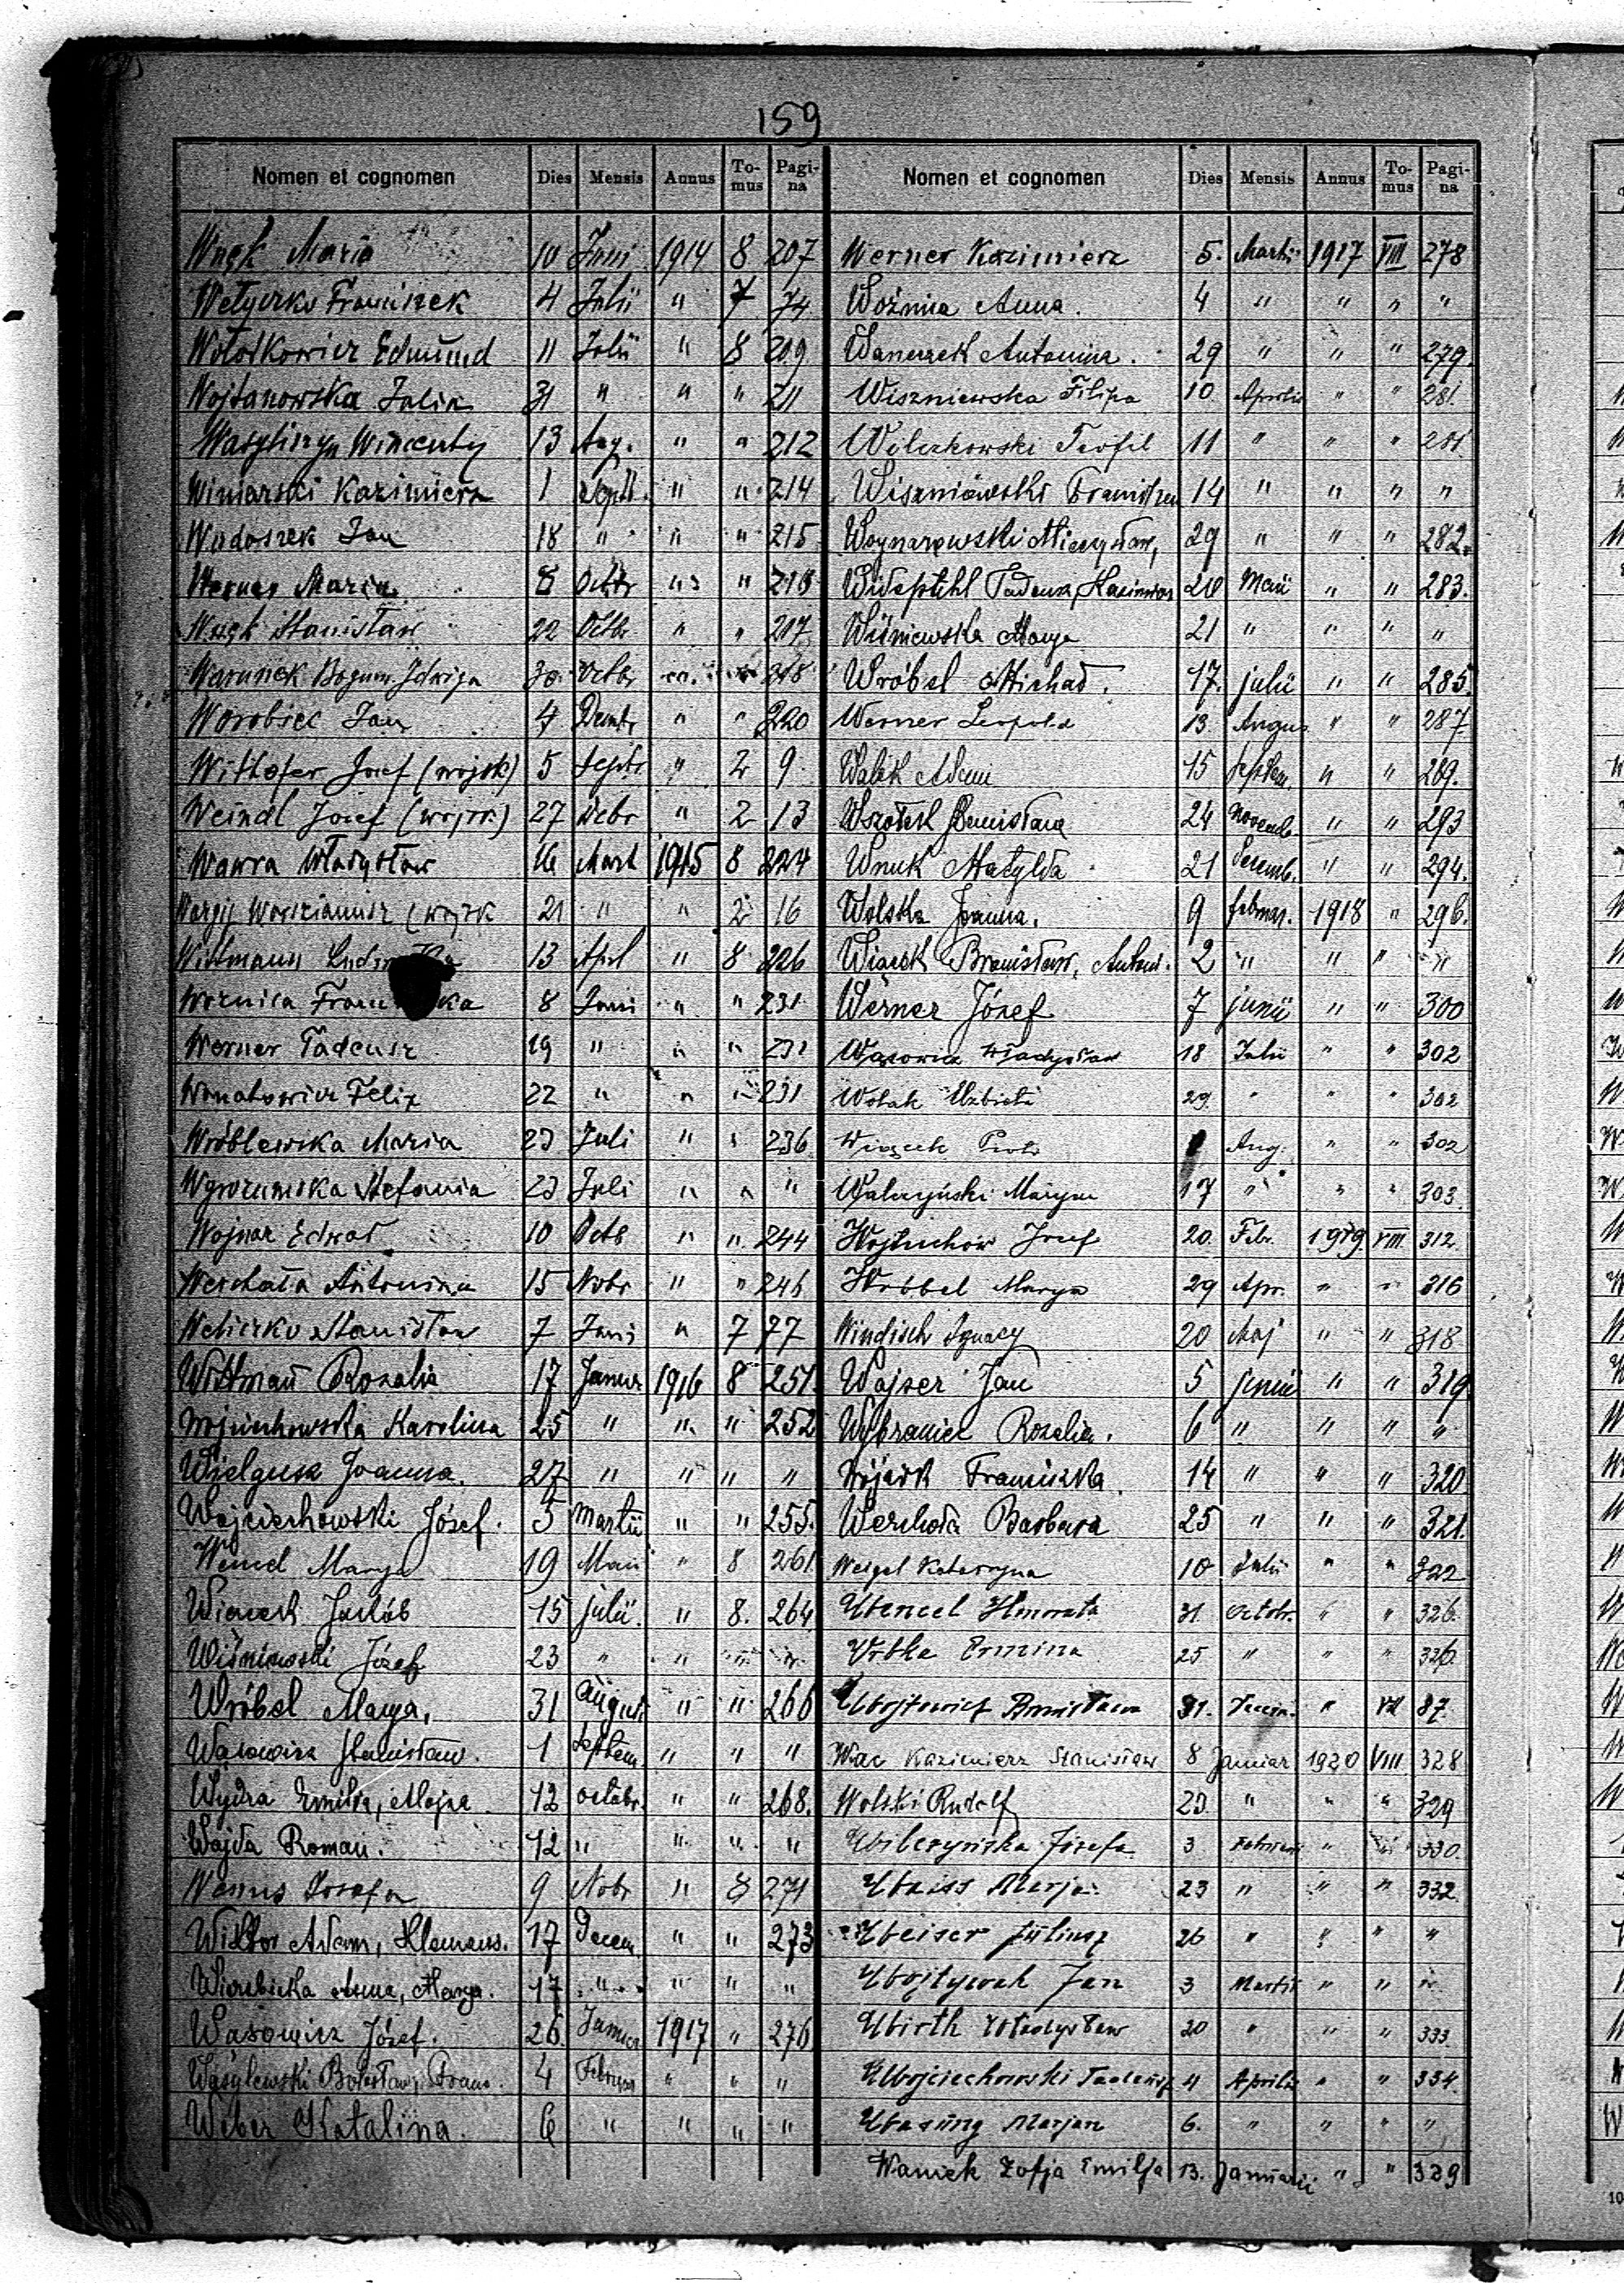 159
Nomen et cognomen Dies Mensis Annus To-mus Pagi-na
Wnęk Maria 10 Juni 1914 8 207
Wełyczko Franciszek 4 Julii " 7 74
Wołoskowicz Edmund 11 Julii " 8 209
Wojtanowska Julia 31 " " " 211
Wasylinyn Wincenty 13 Aug. " " 212
Winiarski Kazimierz 1 Sept. " " 214
Wodoszek Jan 18 " " " 215
Werner Maria 8 Octbr " "
Wnęk Stanisław 22 Octbr " " 217
Warunek Bogum. Jdwiga 30 Octbr " " 218
Worobiec Jan 4 Dcmbr " " 220
Withofer Josef (wojsk) 5 Septr " 2 9
Weindl Josef (wojsk.) 27 " 2 13
Wawra Władysław 16 Mart 1915 8 224
(wojsk 21 " " 2 16
Wittmann 13 Aprl " 8 226
Woznica 8 Juni " " 231
Werner Tadeusz 19 " " " 231
Felix 22 " " " 231
Wróblewska Maria 23 Juli " " 236
Wygrzumska Stefania 23 Juli " " "
Wojnar Edward 10 Octb " " 244
Werchała Antonina 15 Nobr " " 246
Weliczko Stanisław 7 Juni " 7 77
Wittman Rozalia 17 Januar 1916 8 251.
Wojciechowska Karolina 25 " " " 252
Wielgusz Joanna. 27 " " " "
Wojciechowski Józef. 5 Martii " " 255.
Wencel Marya 19 Maii " 8 261
Wiącek Jakób 15 julii. " 8. 264
Wiśniewski Józef 23 " " " "
Wróbel Marya. 31 August " " 266
Wąsowicz Stanisław. 1 Septem " " "
Wydra Emilia, Marja 12 octobr. " " 268.
Wajda Roman. 12 " " " "
Wanus Josefa 9 Nobr " 8 271
Wiktor Adam, Klemens. 17 Decem " " 273
Wierzbicka Anna, Marya. 17 " " " "
Wąsowicz Józef. 26. Januar 1917 " 276
Wasylewski Bolesław, Franc. 4 Februar " " "
Weber Katalina. 6 " " " "
Nomen et cognomen Dies Mensis Annus To-mus Pagi-na
Werner Kazimierz 5. Martii 1917 VIII 278
Woźnica Anna. 4 " " " "
Wanczek Antonina. 29 " " " 279.
Wiszniewska Filipa 10 Aprilis " " 281.
Wilczkowski Teofil 11 " " " 281.
Wiszniewski 14 " " " "
Woynarowski Mieczysław, 29 " " " 282.
Tadeusz, Kazimierz 20 Maii " " 283.
Wiśniewska Marya 21 " " " "
Wróbel Michał. 17. julii " " 285.
Werner Leopold 13. August " " 287
Walek Adam 15 Septem. " " 289.
Wszołek Bronisława 24 Novemb. " " 293
Wnuk Matylda 21 Decemb. " " 294.
Wolska Joanna. 9 februar. 1918 " 296.
Wiącek Bronisław, Antoni. 2 " " " "
Werner Józef 7 junii " " 300
Wąsowicz Władysław 18 Julii " " 302
Wolak Elżbieta 29. " " " 302
Wiącek Piotr Aug. " " 302
Walczyński Maryan 17 " " " 303.
Wojciechow Josef 20. Febr. 1919. VIII. 312.
Wróbbel Marya 29 Apr. " " 316
Windisch Ignacy 20 Maj " " 318
Wajser Jan 5 junii " " 319
Wybraniec Rozalia. 6 " " " "
Wójcik Franciszka. 14 " " " 320
Werchoła Barbara 25 " " " 321.
Weigel Katarzyna 10 Julii " " 322
Wencel Honorata 31 Octobr. " " 326.
Wotka Ermina 25 " " " 326.
Wojtowicz Bronisława 31. " VII 87.
Wac Kazimierz Stanisław 8 Januar 1920 VIII. 328
Wolski Rudolf 23. " " " 329
Wilczyńska Józefa 3 Februarii " " 330.
Weiss Marja 23 " " " 332.
Weiser Juliusz 26 " " " "
Wojtywak Jan 3 Martii " " "
Wirth Władysław 20 " " " 333.
Wojciechowski Tadeusz 4 Aprilis " " 334.
Wasung Marjan 6. " " " "
Waniek Zofja Emilja 13. Januarii " " 339